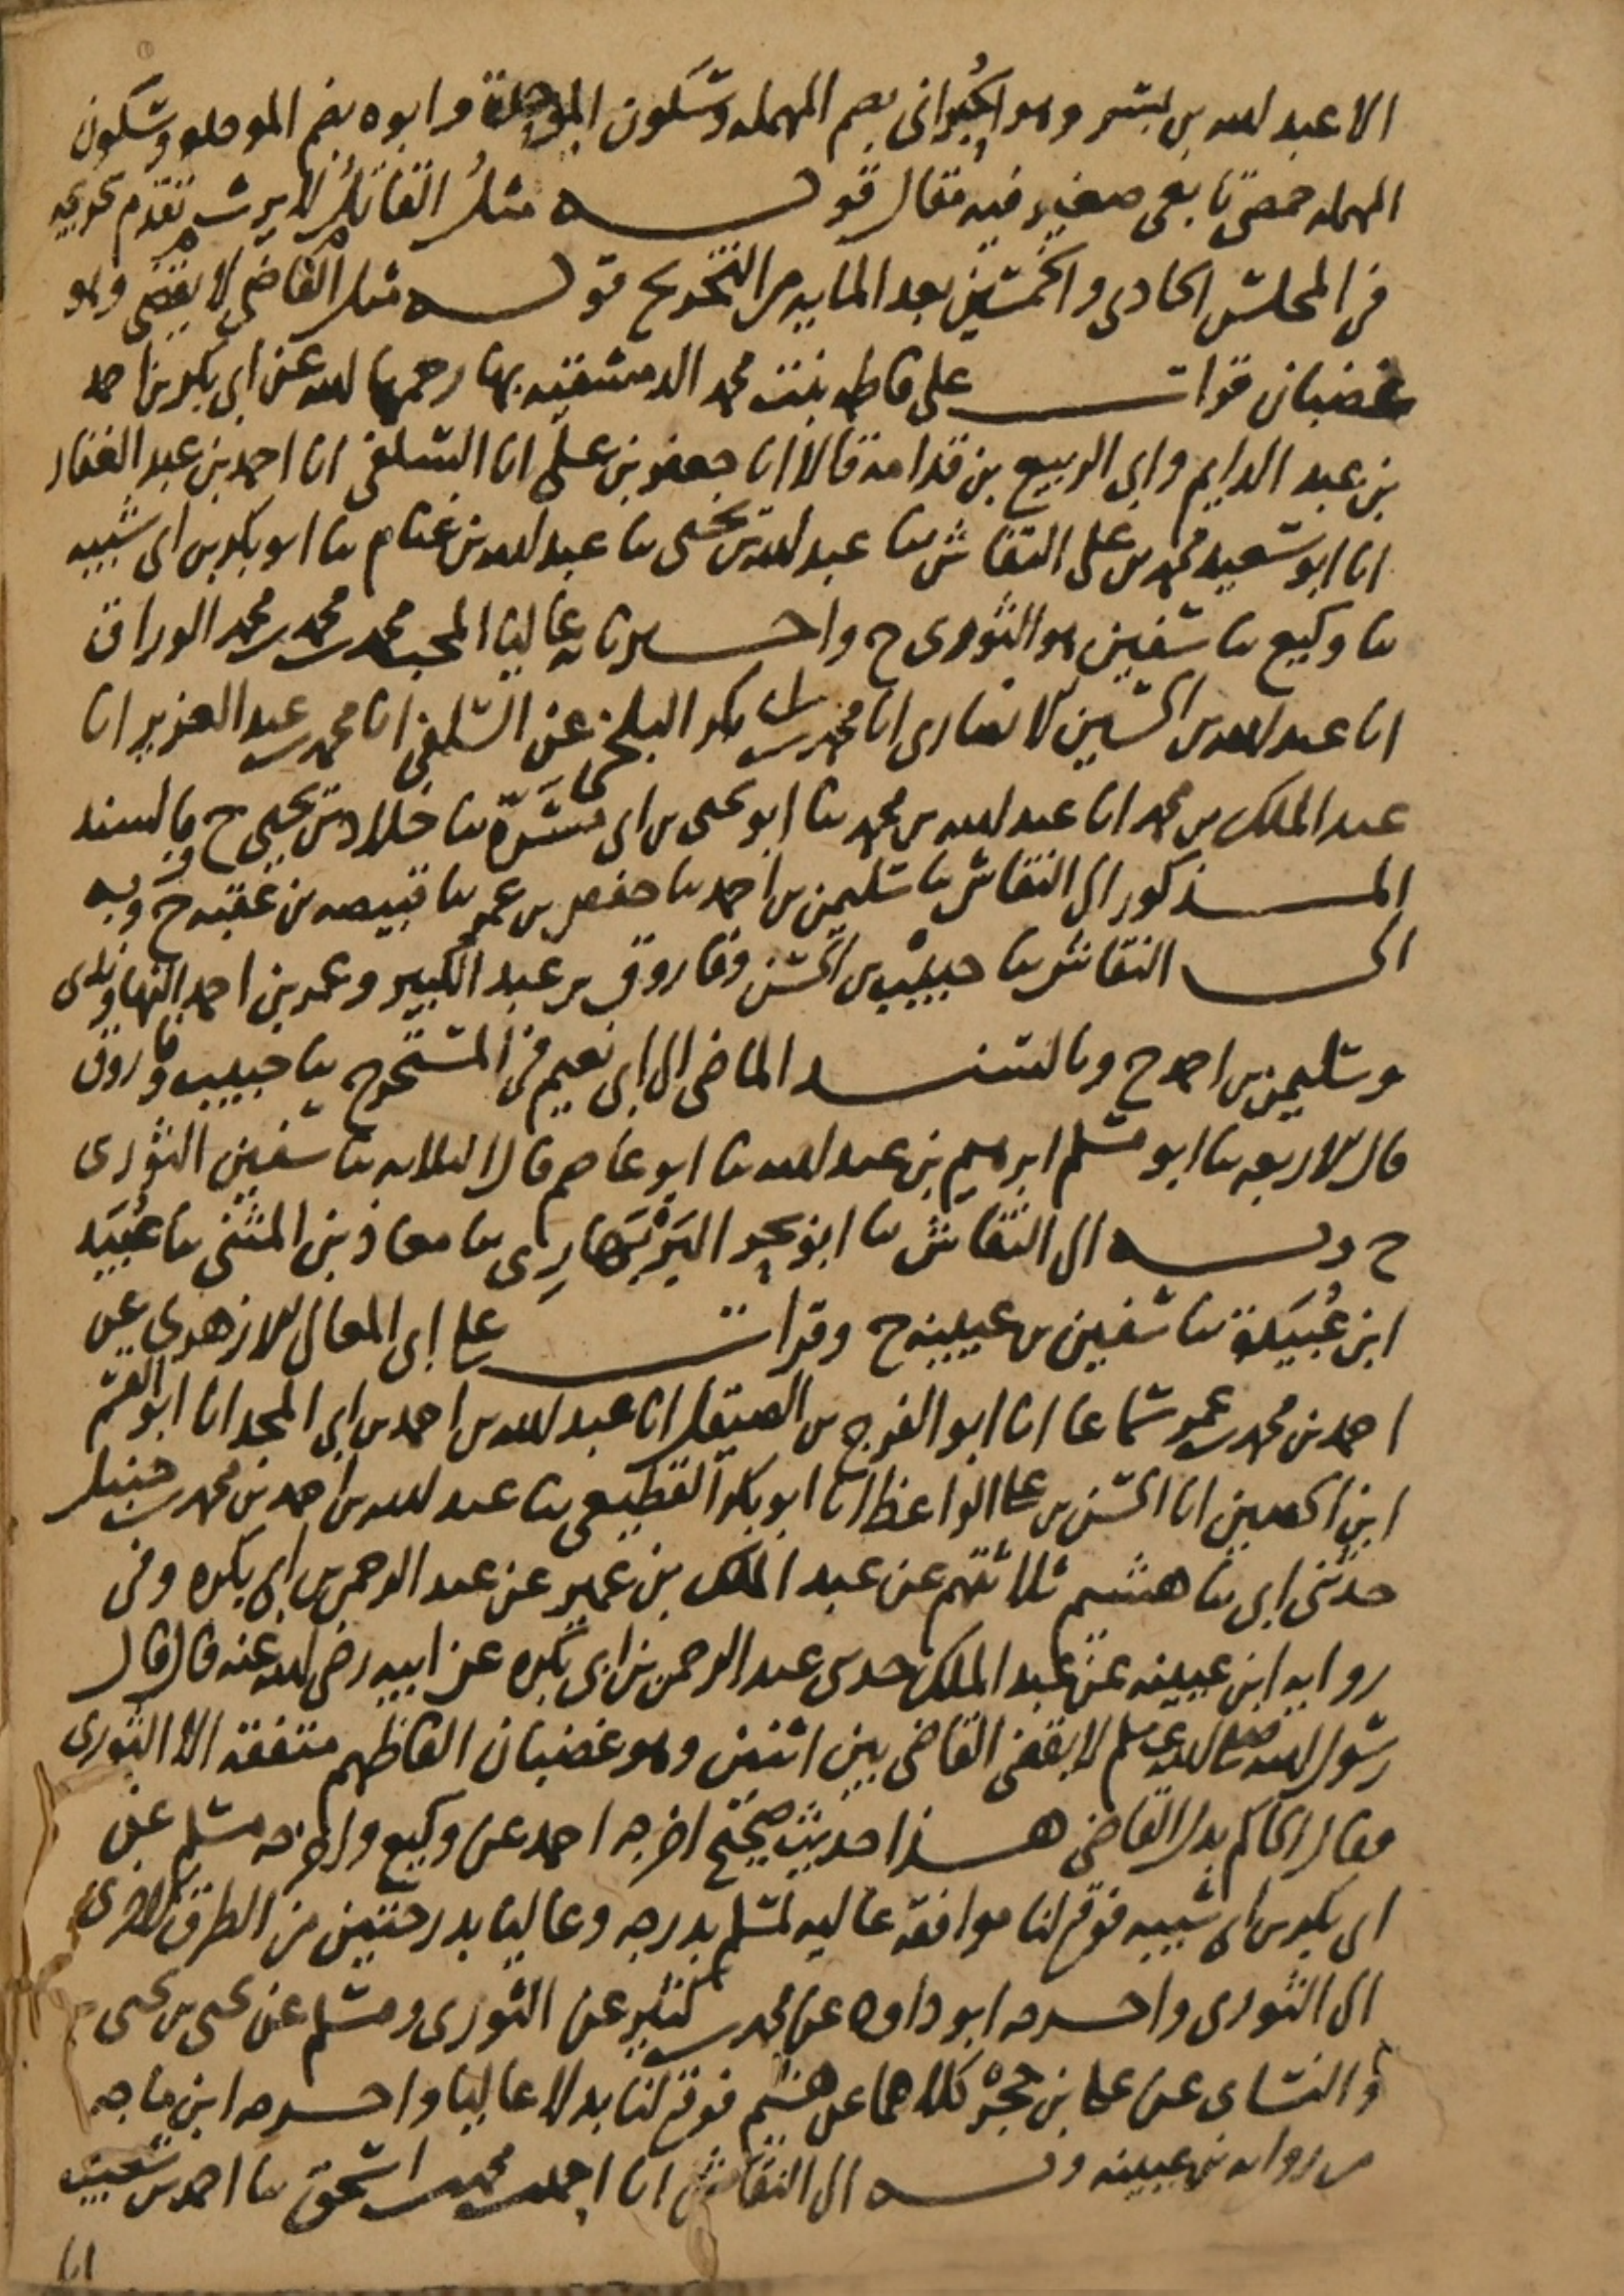 الا عبد الله بن بسر وهو الحُبراني بضم المهملة وسكون الموحدة وابوه بضم الموحده وسكون
المهمله حمصى تابعى صغير فيه مقال قوله مثل القاتل لا يرث تقدم تخريجه
فى المجلس الحادى والخمسين بعد المايه من التخريج قوله مثل القاضي لا يقضي وهو
غضبان قرات على فاطمه بنت محمد الدمشقيه بها رحمها الله عن ابى بكر بن احمد
بن عبد الدايم وابى الربيع بن قدامة قالا انا جعفر بن على انا السلفى انا احمد بن عبد الغفار
انا ابو سعيد محمد بن على النقاش نا عبد الله بن يحيى نا عبد الله بن غنام نا ابو بكر بن ابى شيبه
نا وكيع نا سفين هو الثورى ح واخبرنا به عاليا المحب محمد بن محمد بن محمد الوراق
انا عبد الله بن الحسين الانصارى انا محمد بن ابى بكر البلخى عن السلفى انا محمد بن عبد العزيز انا
عبد الملك بن محمد انا عبد الله بن محمد نا ابو يحيى بن ابى مَسَرّة نا خلاد بن يحيى ح وبالسند
المذكور الى النقاش نا سليمن بن احمد نا حفص بن عمر نا قبيصه بن عقبه ح وبه
الى النقاش نا حبيب بن الحسن وفاروق بن عبد الكبير وعمر بن احمد النهاوندى
وسليمن بن احمد ح وبالسند الماضى الى ابى نعيم فى المستخرج نا حبيب وفاروق
قال الاربعه نا ابو مسلم ابرهيم بن عبد الله نا ابو عاصم قال الثلاثه نا سفين الثورى
ح وبه الى النقاش نا ابو بحر البَرْبَهارِى نا معاذ بن المثنى نا عُبَيد
ابن عُبَيدة نا سفين بن عيينه ح وقرات على ابى المعالى الازهرى عن
احمد بن محمد بن عمر سماعا انا ابو الفرج بن الصيقل انا عبد الله بن احمد بن ابى المجد انا ابو القسم
ابن الحصين انا الحسن بن على الواعظ انا ابو بكر القطيعى نا عبد الله بن احمد بن محمد بن حنبل
حدثنى ابى نا هشيم ثلاثتهم عن عبد الملك بن عمير عن عبد الرحمن بن ابى بكره وفى
روايه ابن عيينه عن عبد الملك حدثنى عبد الرحمن بن ابى بكره عن ابيه رضى الله عنه قال قال
رسول الله صلى الله عليه وسلم لا يقضى القاضى بين اثنين وهو غضبان الفاظهم متفقه الا الثورى
فقال الحاكم بدل القاضى هذا حديث صحيح اخرجه احمد عن وكيع واخرجه مسلم عن
ابى بكر بن ابى شيبه فوقع لنا موافقة عاليه لمسلم بدرجه وعاليا بدرجتين من الطرق الاخرى
الى الثورى واخرجه ابو داود عن محمد بن كثير عن الثورى ومسلم عن يحيى بن يحيى
والنسائى عن على بن حجر كلاهما عن هشيم فوقع لنا بدلا عاليا واخرجه ابن ماجه
من روايه بن عيينه وبه الى النقاش انا احمد بن محمد بن اسحق نا احمد بن شعيب
انا